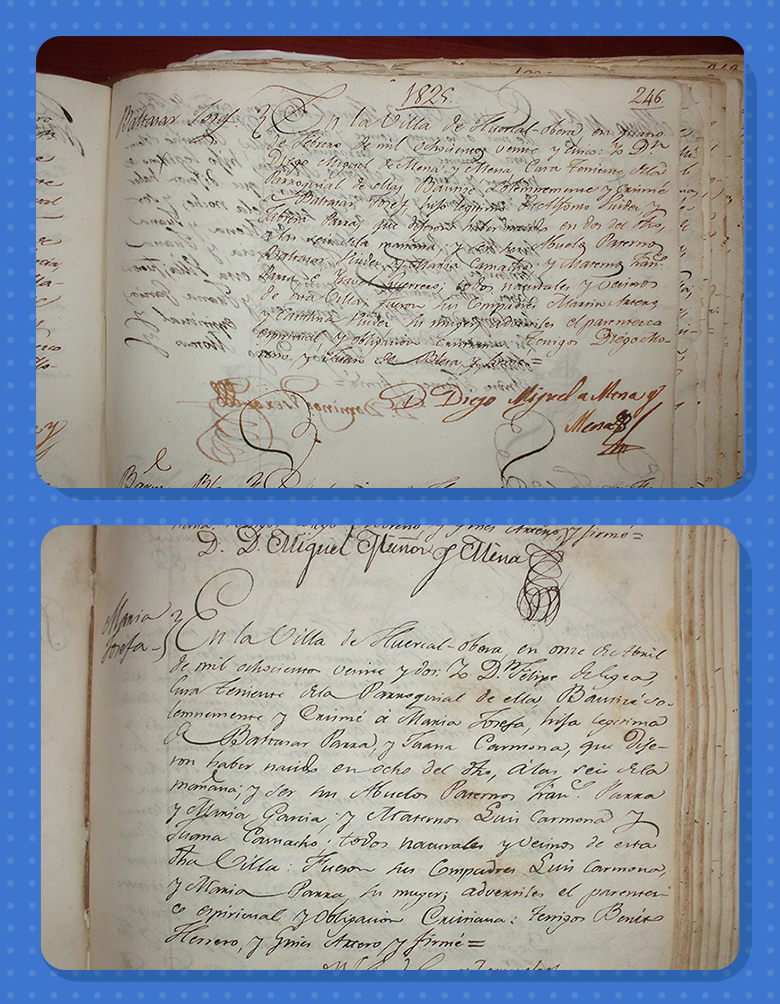 1825.
246.
Baltasar Josef
En la Villa de Huercal-obera en quatro
de Febrero de mil ochocientos veinte y cinco: Yo Dn
Diego Miguel de Mena y Mena, Cura Teniente de la
Parroquial de ella; Bautize solemnemente y Crisme
a Baltasar Josef hijo legitimo de Alfonso Ruder y
Parra, que dijeron haber nacido en dos del dho,
a las seis de la mañana, y ser sus Abuelos Paternos
Baltasar Ruder, y Maria Camacho, y Maternos Franco
Parra, é Herrero; todos naturales y vecinos
de esta Villa; fueron sus Compadres Martin Artero
y Catalina Ruder su muger, advertiles el parentesco
espiritual, y obligacion Cristiana: testigos Diego
y Juan de Blera, y firmé=
D. Diego Miguel de Mena y
Mena
hijos Diego Moreno y Gines Artero y firmé=
D. D. Miguel Muñoz y Mena
Maria
Josefa
En la Villa de Huercal-obera, en once de Abril
de mil ochocientos veinte y dos: Yo Dn Felipe de
Cura Teniente de la Parroquial de ella Bautizé so-
lemnemente y Crismé á Maria Josefa, hija legitima
de Baltasar Parra, y Juana Carmona, que Dije-
ron haber nacido en ocho del dho, a las seis de la
mañana; y ser sus Abuelos Paternos Franco Parra
y Maria Garcia; y Maternos Luis Carmona y
Juana Camacho: todos naturales y vecinos de esta
dha Villa: Fueron sus Compadres Luis Carmona,
y Maria Parra, su muger; advertiles el parentes-
co espiritual y obligacion Cristiana: testigos Benito
Herrero, y Gines Artero y firmé=